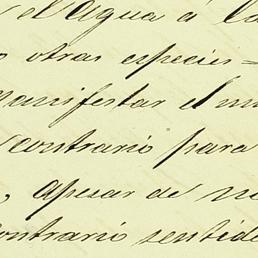 el Agua á la
otras especies =
manifestar el mu
contrario para
, apesar de no
contrario sentido